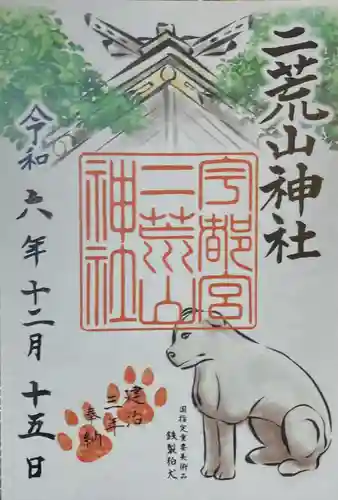 二荒山神社
宇都宮
二荒山
神社
令和六年十二月十五日
建治
三年
奉納
国指定重要美術品
鉄製狛犬